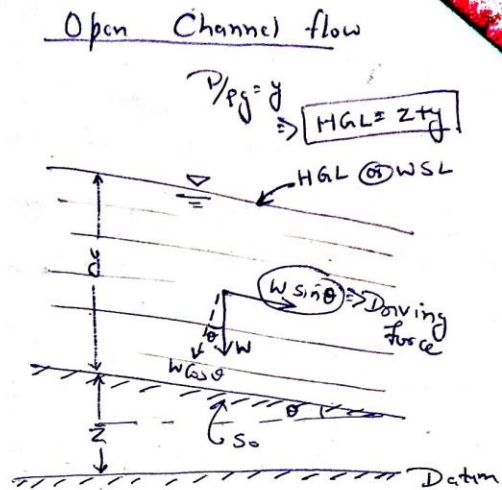 Open Channel flow
P/ρg = y
⇒ HGL = z+y
HGL or WSL
y
W sinθ ⇒ Driving
force
θ
W
W cosθ
θ
S₀
Z
Datum